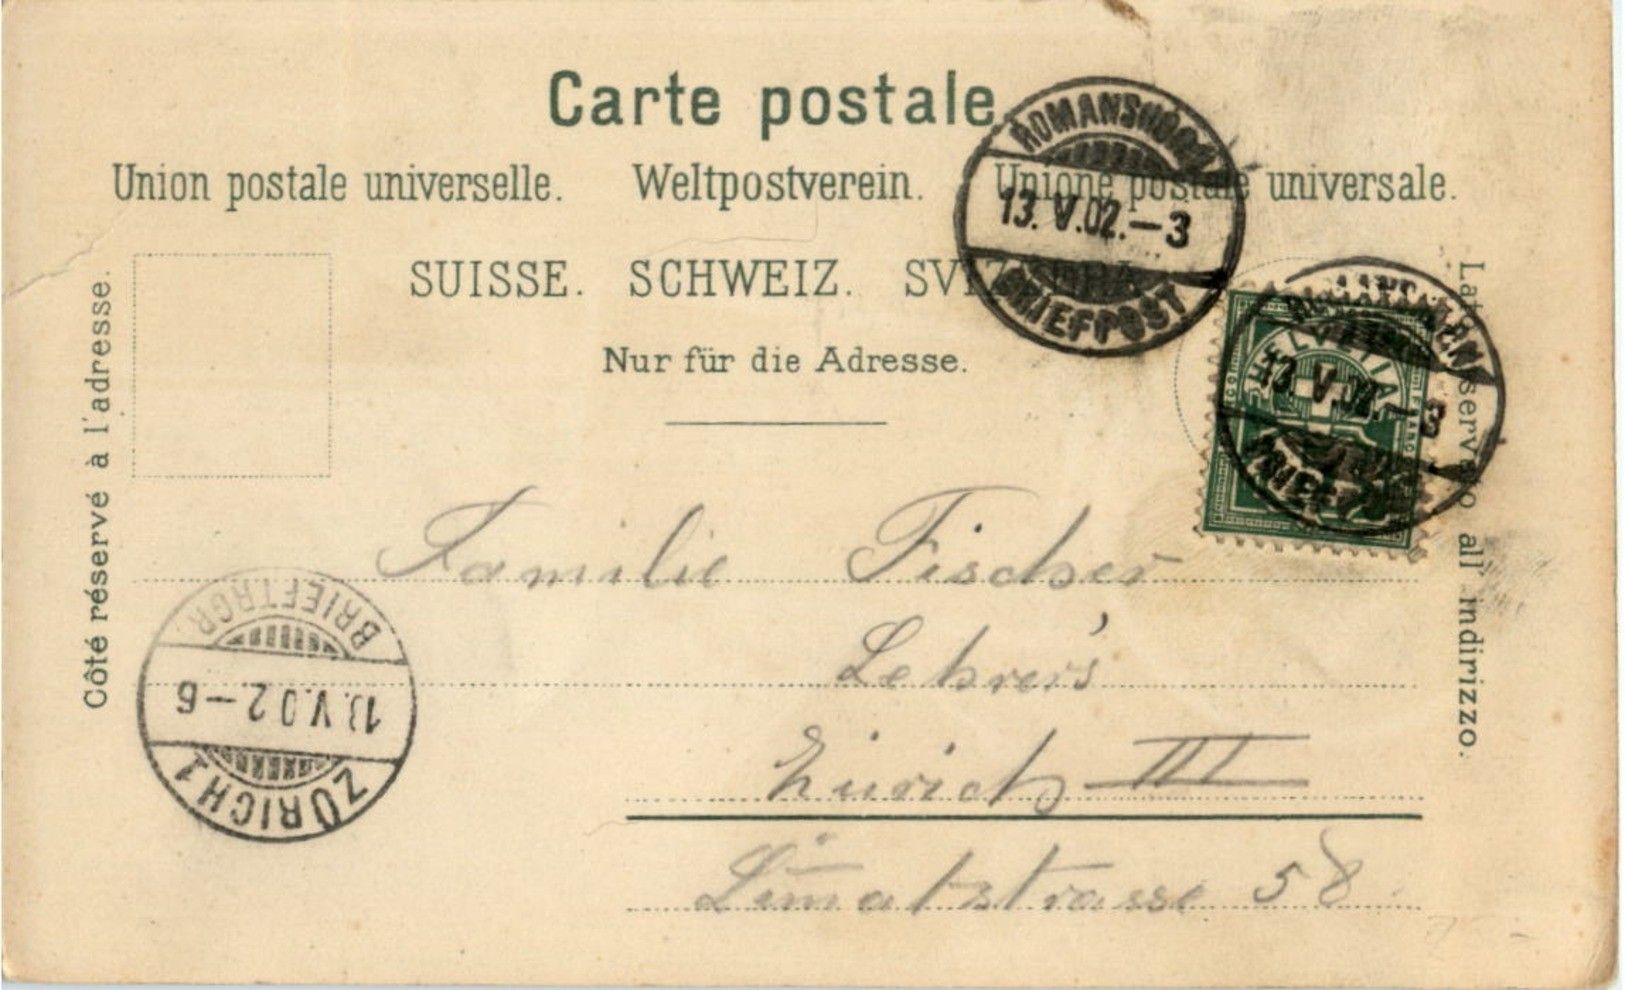 Carte postale
Union postale universelle. Weltpostverein. Unione postale universale.
SUISSE. SCHWEIZ. SVIZZERA.
Nur für die Adresse.
Côté réservé à l'adresse.
Lato riservato all' indirizzo.
ROMANSHORN
13. V.02.–3
BRIEFPOST
HELVETIA
13. V.02.–3
Familie Fischer
Lehrer's
Zürich III
Lim̅atstrasse 58.
BRIEFTRGR.
13.V.02–6
ZÜRICH 1